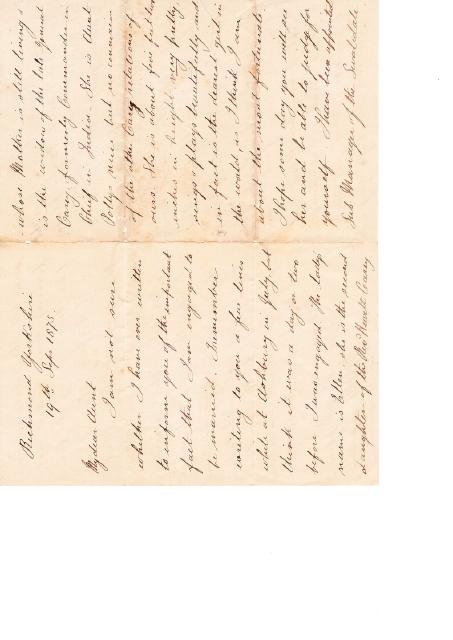 Richmond Yorkshire
19th Sep 1875
My dear Aunt
I am not sure
whether I have ever written
to inform you of the important
fact that I am engaged to
be married. I remember
writing to you a few lines
while at Ashbury in July, but
think it was a day or two
before I was engaged. The lady's
name is Ellen, she is the second
daughter of the Rev Carey
whose Mother is still living &
is the widow of the late General
Carey formerly Commander in
Chief in India. She is Aunt
Polly's niece but no connexion
of the other Carey relations of
ours. She is about five feet two
inches in height very pretty,
sings & plays beautifully and
in fact is the dearest girl in
the world, as I think I am
about the most fortunate
I hope some day you will see
her and be able to judge for
yourself. I have been appointed
Sub Manager of the Swaledale